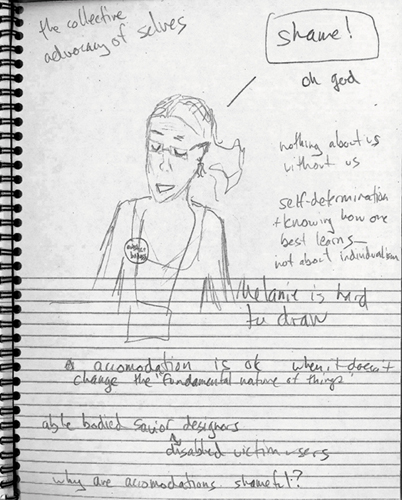 the collective
advocacy of selves
shame!
oh god
nothing about us
without us
self-determination
+ knowing how one
best learns
not about individualism
Melanie is hard
to draw
accomodation is ok when it doesn't
change the "fundamental nature of things"
able bodied savior designers
disabled victim-users
why are accomodations shameful?